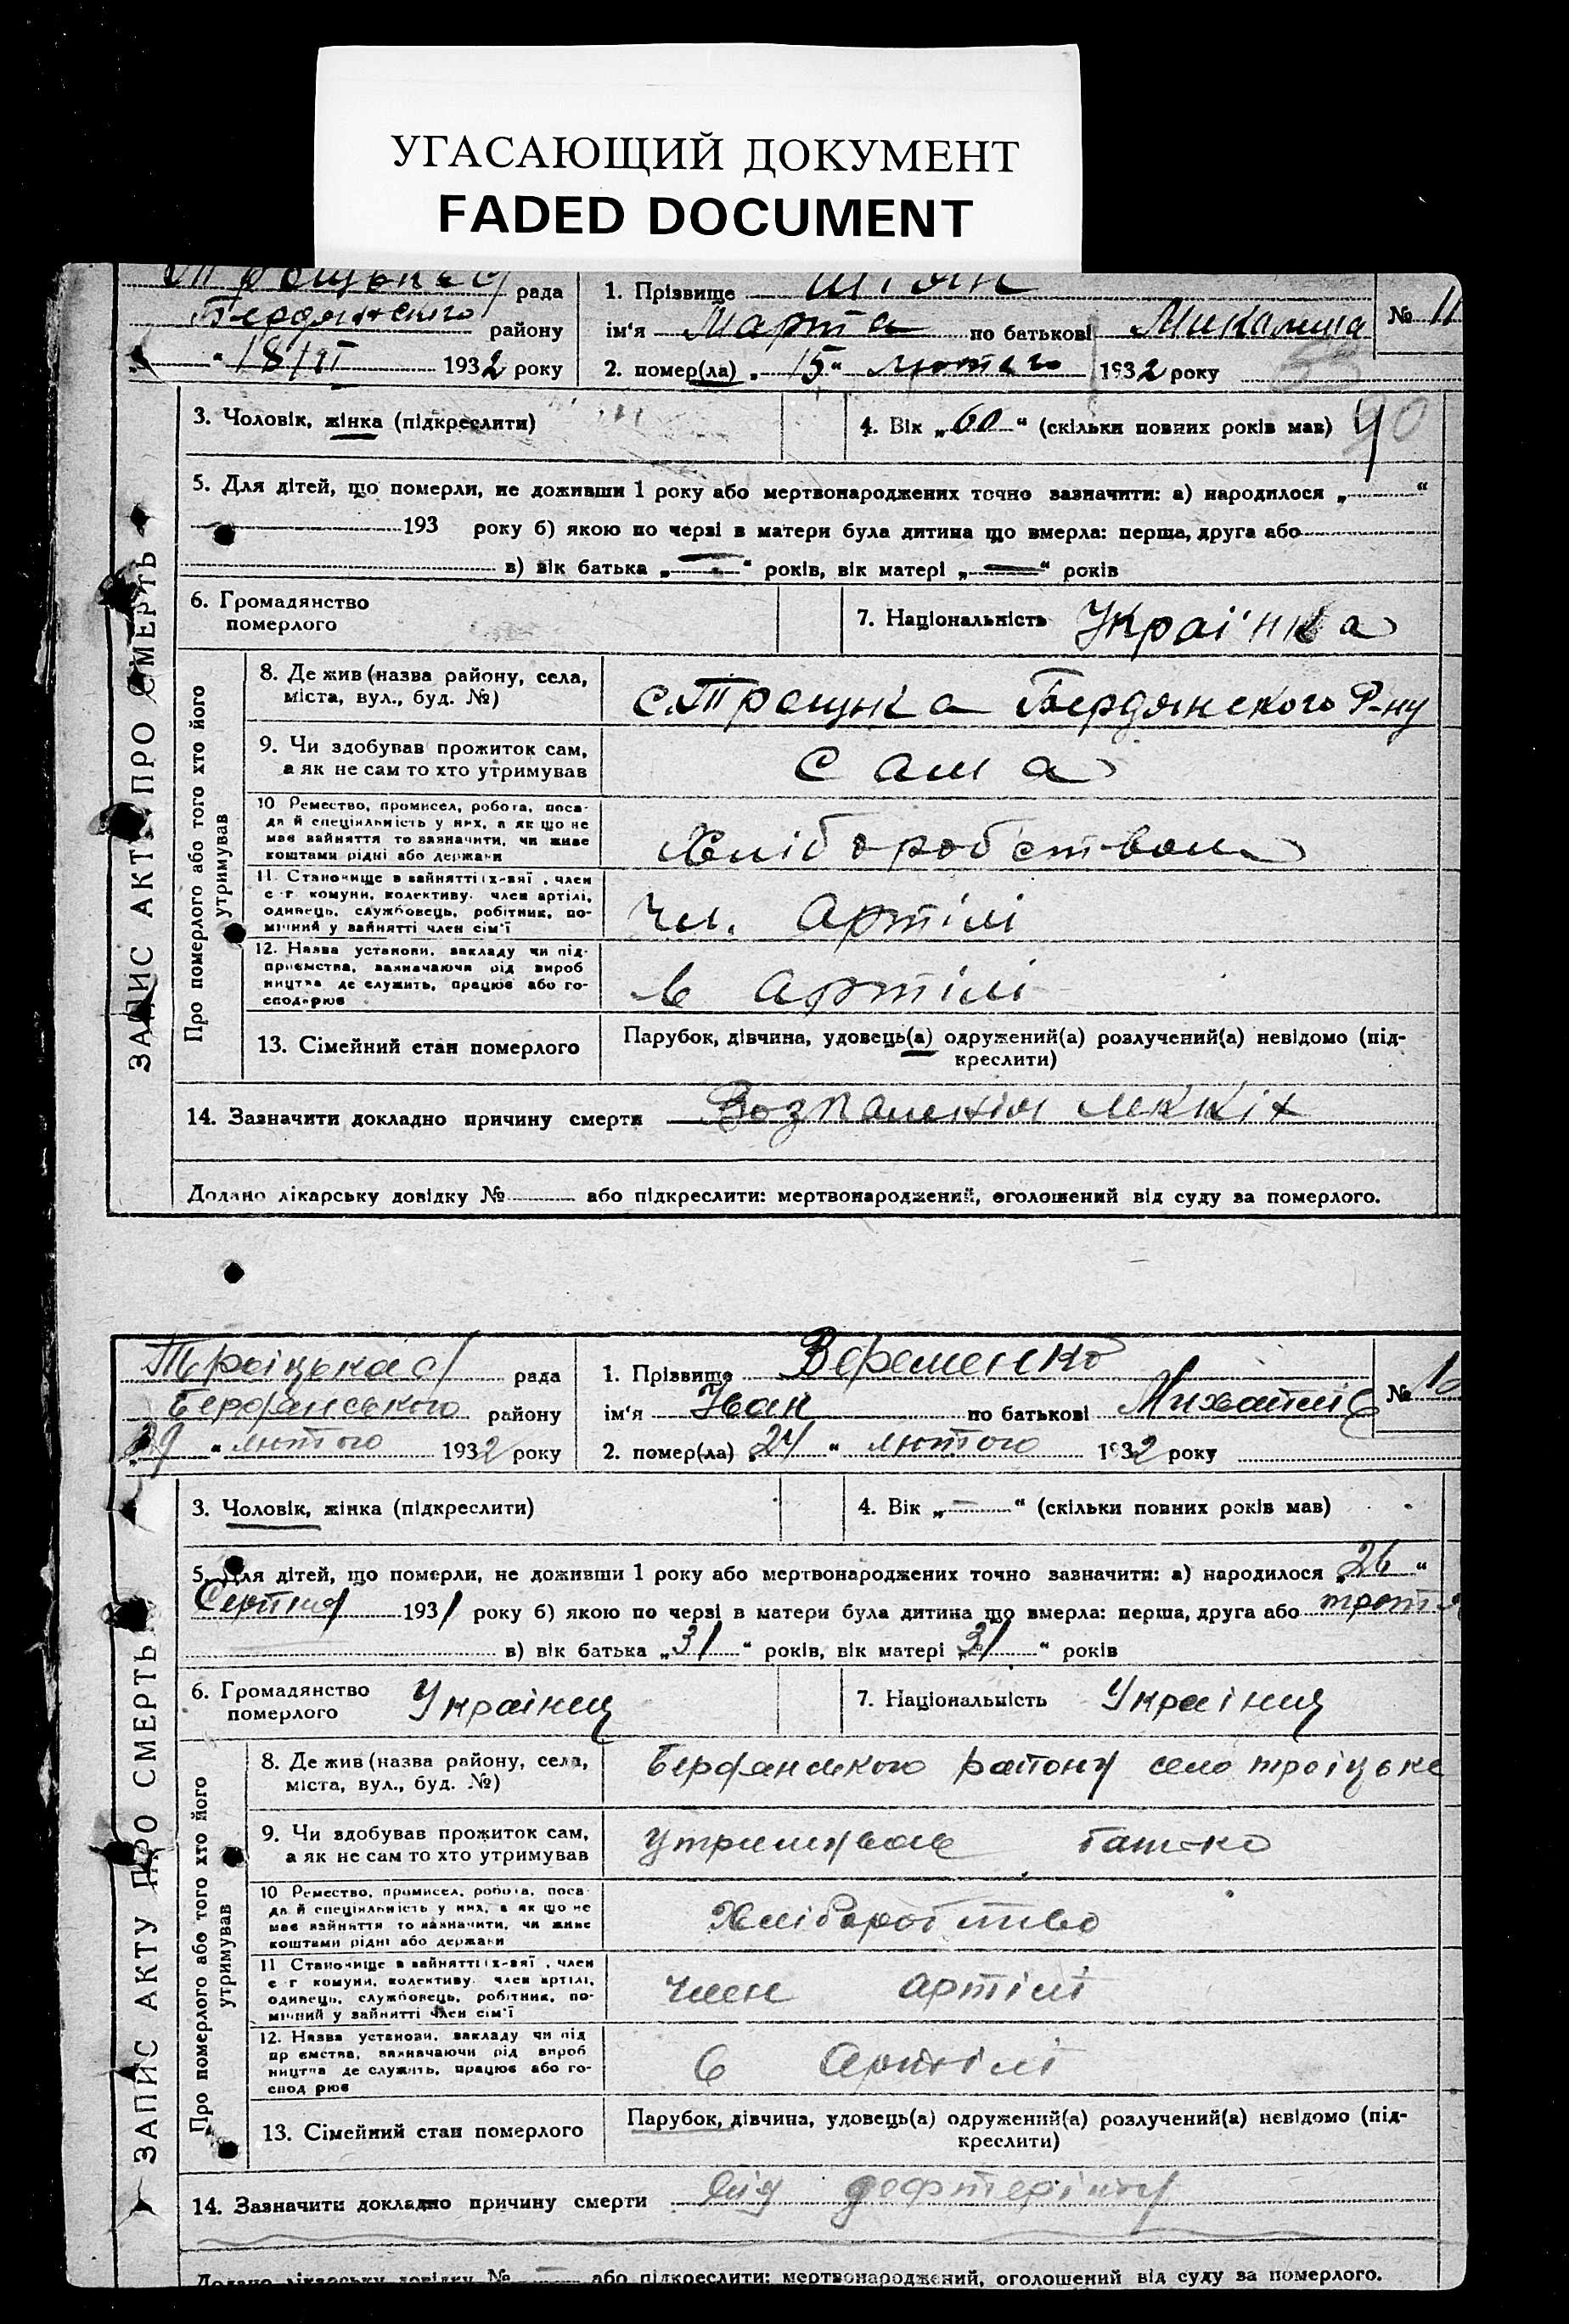 УГАСАЮЩИЙ ДОКУМЕНТ
FADED DOCUMENT
рада
Бердянского району
"18/II 1932 року
1. Прізвище
ім'я Марта по батькові
2. помер(ла) "15" лютого 1932 року
№ 11
3. Чоловік, жінка (підкреслити)
4. Вік „60" (скільки повних років мав)
90
5. Для дітей, що померли, не доживши 1 року або мертвонароджених точно зазначити: а) народилося „ "
193 року б) якою по черзі в матери була дитина що вмерла: перша, друга або
в) вік батька „—" років, вік матері „—" років
6. Громадянство
померлого
7. Національність Українка
ЗАПИС АКТУ ПРО СМЕРТЬ
Про померлого або того хто його
утримував
8. Де жив (назва району, села,
міста, вул., буд. №)
с. Троцька Бердянского Р-ну
9. Чи здобував прожиток сам,
а як не сам то хто утримував
сама
10 Ремество, промисел, робота, поса-
да й спеціяльність у них, а як що не
має зайняття то зазначити, чи живе
коштами рідні або держави
Хлібороб'ством
11. Становище в зайнятті (х-зяї, член
с-г. комуни, колективу, член артілі,
одинець, службовець, робітник, по-
мічний у зайнятті член сім'ї
чл. артілі
12. Назва установи, закладу чи під-
приємства, зазначаючи рід вироб
ництва де служить, працює або го-
сподарює
в артілі
13. Сімейний стан померлого
Парубок, дівчина, удовець(а) одружений(а) розлучений(а) невідомо (під-
креслити)
14. Зазначити докладно причину смерти
Додано лікарську довідку № або підкреслити: мертвонароджений, оголошений від суду за померлого.
Троіцька с/ рада
Бердянського району
29 " лютого 1932 року
1. Прізвище Веременко
ім'я Іван по батькові Михайлів
2. помер(ла) 24 " лютого 1932 року
№
3. Чоловік, жінка (підкреслити)
4. Вік „—" (скільки повних років мав)
5. Для дітей, що померли, не доживши 1 року або мертвонароджених точно зазначити: а) народилося „26"
Серпня 1931 року б) якою по черзі в матери була дитина що вмерла: перша, друга або
в) вік батька „31" років, вік матері „31" років
6. Громадянство
померлого
Украінец
7. Національність Украінец
ЗАПИС АКТУ ПРО СМЕРТЬ
Про померлого або того хто його
утримував
8. Де жив (назва району, села,
міста, вул., буд. №)
Бердянського району село троіцьке
9. Чи здобував прожиток сам,
а як не сам то хто утримував
утримував батько
10 Ремество, промисел, робота, поса-
да й спеціяльність у них, а як що не
має зайняття то зазначити, чи живе
коштами рідні або держави
Хліборобство
11 Становище в зайнятті (х-зяї, член
с-г комуни, колективу, член артілі,
одинець, службовець, робітник, по-
мічний у зайнятті член сім'ї
член артілі
12. Назва установи, закладу чи під
приємства, зазначаючи рід вироб
ництва де служить, працює або го-
сподарює
в Артілі
13. Сімейний стан померлого
Парубок, дівчина, удовець(а) одружений(а) розлучений(а) невідомо (під-
креслити)
14. Зазначити докладно причину смерти від
Додано лікарську довідку № — або підкреслити: мертвонароджений, оголошений від суду за померлого.